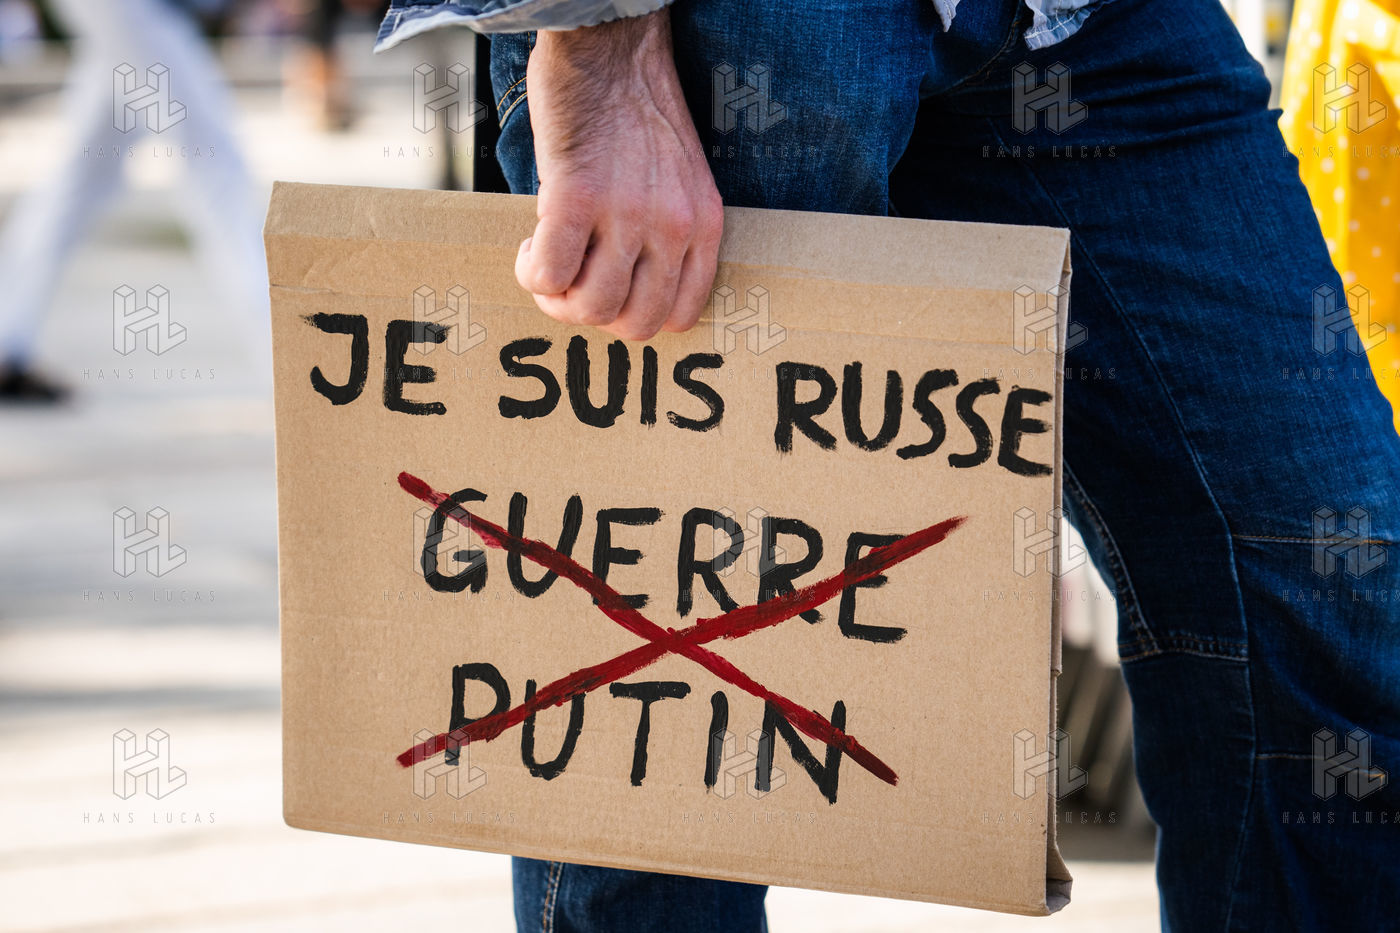 JE SUIS RUSSE
GUERRE
PUTIN
HANS LUCAS